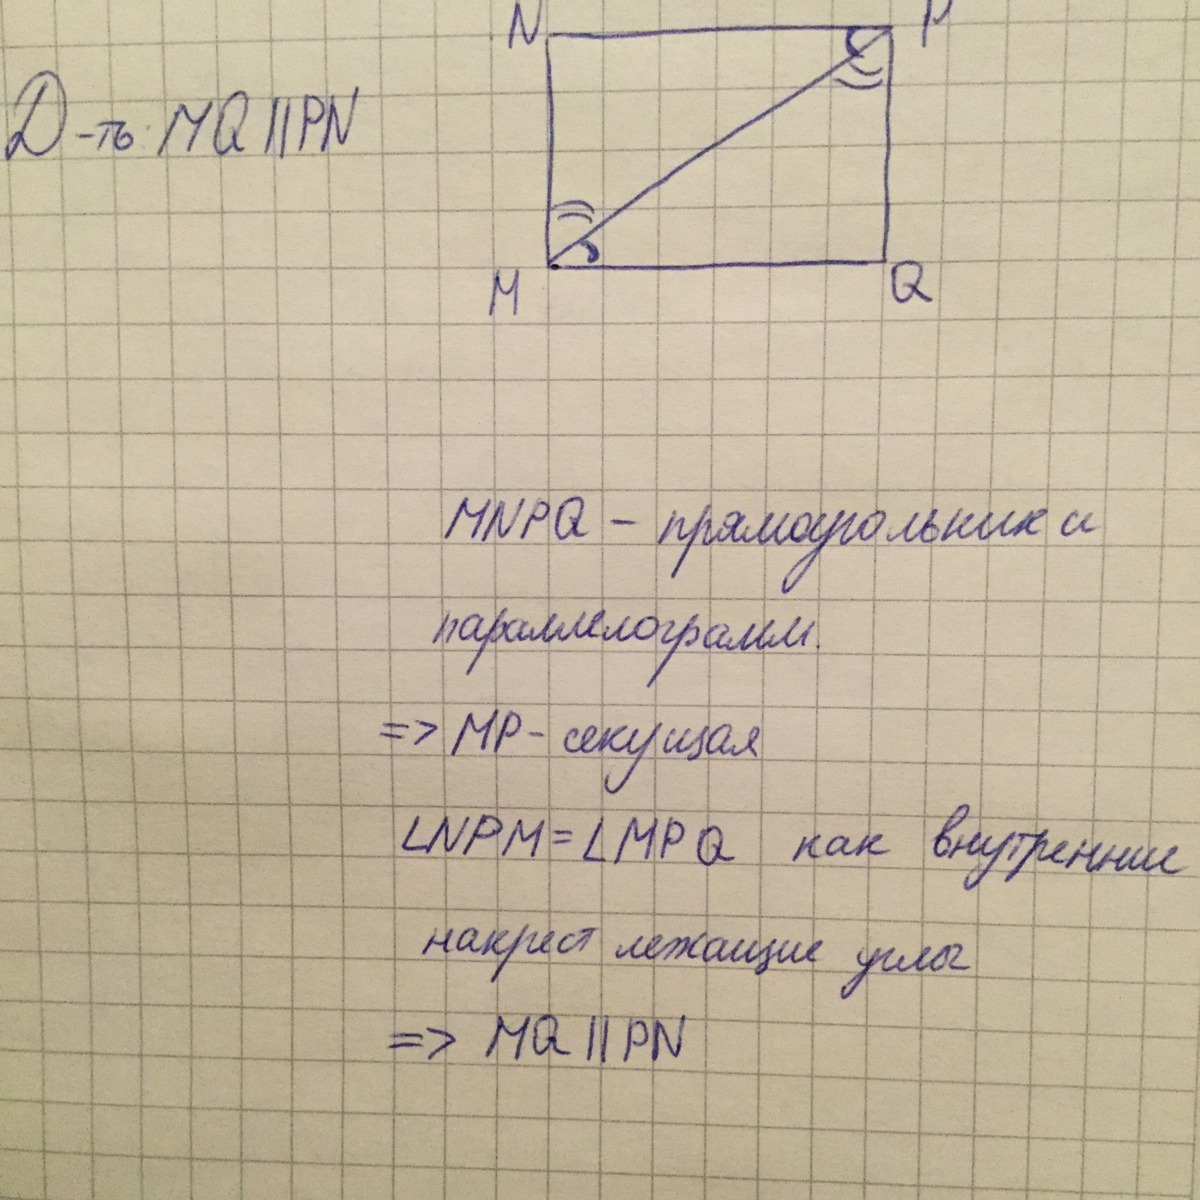 N P
Д-ть: MQ || PN
M Q
MNPQ - прямоугольник и
параллелограмм.
=> MP - секущая
∠NPM = ∠MPQ как внутренние
накрест лежащие углы
=> MQ || PN